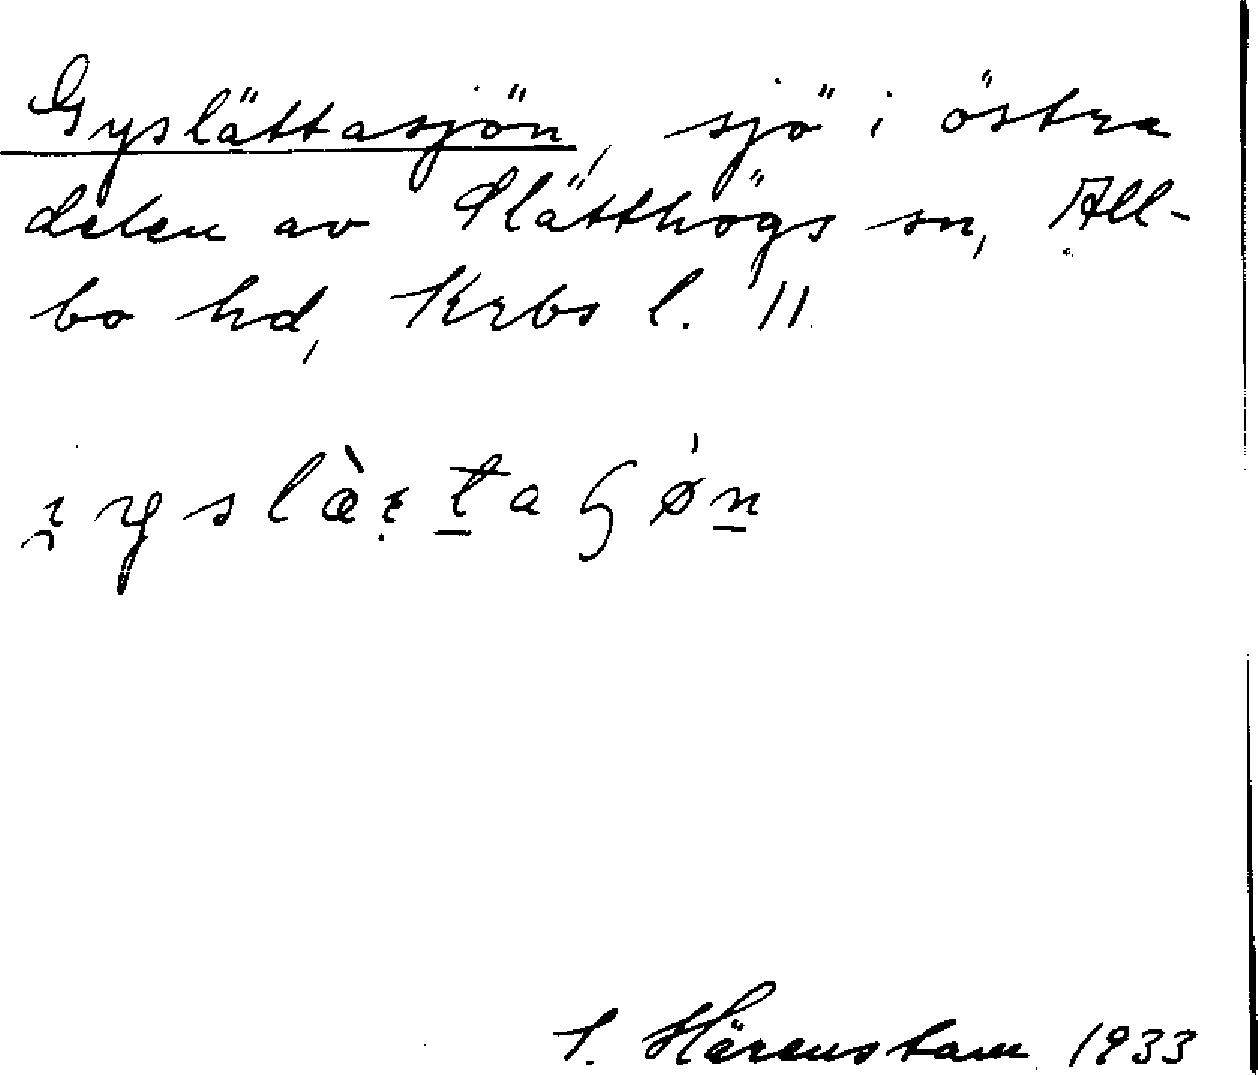 Gyslättasjön, sjö i östra
delen av Slätthögs sn, All-
bo hd, Krbs l. 11

S. Härenstam 1933